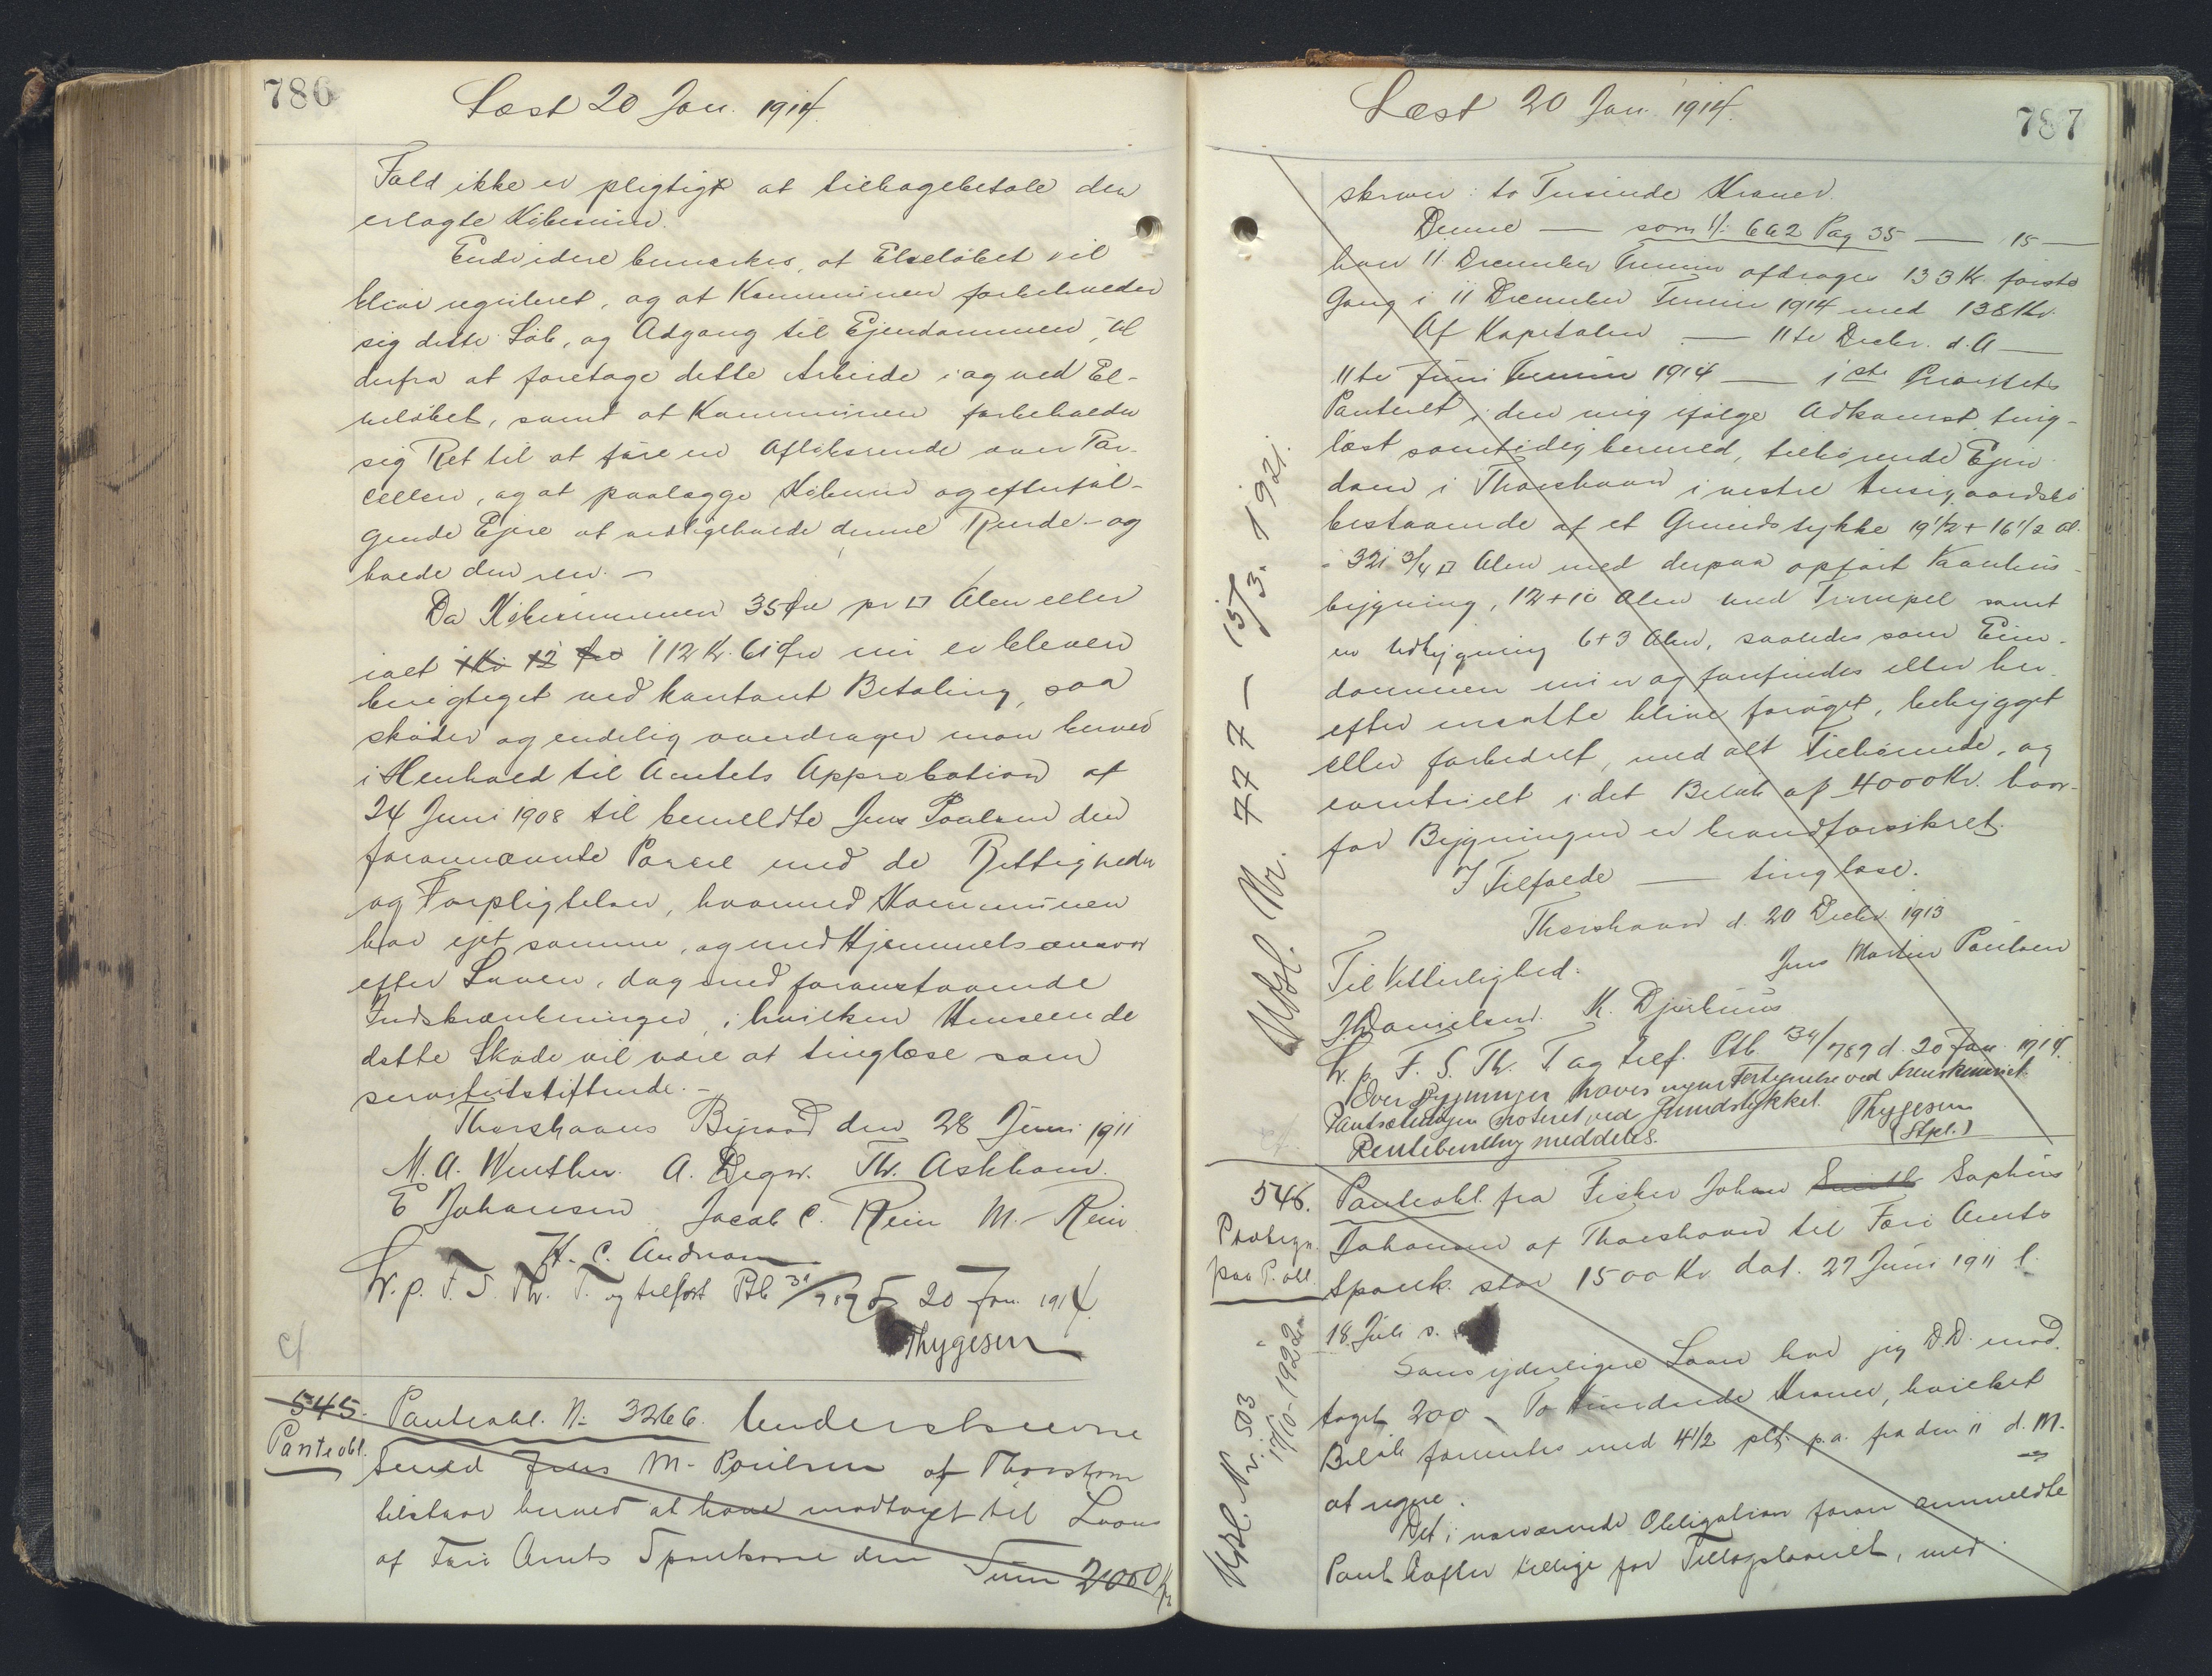 786
Læst 20 Jan. 1914.
Fald ikke er pligtigt at tilbagebetale den
erlagte Købesum.
Endvidere bemærkes, at Elveløbet vil
blive reguleret, og at Kommunen forbeholder
sig dette Løb, og Adgang til Ejendommen, til
derfra at foretage dette Arbeide i og ved El-
veløbet, samt at Kommunen forbeholder
sig Ret til at føre en Afløbsrende over Par-
cellen, og at paalægge Køberen og efterføl-
gende Ejere at vedligeholde denne Rende og
holde den ren. -
Da Købesummen 35 Øre pr □ Alen eller
ialt 112 Kr. 61 Øre nu er bleven
berigtiget ved kontant Betaling, saa
skøder og endelig overdrager man herved
i Henhold til Amtets Approbation af
24 Juni 1908 til bemeldte Jens Poulsen den
forannævnte Parcel med de Rettigheder
og Forpligtelser, hvormed Kommunen
har ejet samme, og med Hjemmelsansvar
efter Loven, dog med foranstaaende
Indskrænkninger, i hvilken Henseende
dette Skøde vil være at tinglæse som
servitutstiftende. -
Thorshavns Byraad den 28 Juni 1911
M. A. Winther. A. Degn. Th. Askham.
E Johansen Jacob C. Rein M. Rein
H. C. Andreasen
L. p. F. S. Th. T. og tilført Ptb 34/787 d 20 Jan. 1914.
Thygesen
cf
545. Panteobl. N: 3266. Underskrevne
Panteobl. Smed Jens M. Poulsen af Thorshavn
tilstaar herved at have modtaget til Laans
af Færø Amts Sparekasse den Sum 2000 Kr
Læst 20 Jan. 1914.
787
skriver: to Tusinde Kroner.
Denne — som N: 662 Pag 35 — 15 —
hver 11 December Termin afdrages 133 Kr. første
Gang i 11 December Termin 1914 med 138 Kr.
Af Kapitalen — 11te Decbr. d. A —
11te Juni Termin 1914 — 1ste Prioritets
Panteret i den mig ifølge Adkomst, ting-
læst samtidig hermed, tilhørende Ejen-
dom i Thorshavn i vestre Husegaardsbø
bestaaende af et Grundstykke 19 1/2 + 16 1/2 Al.
= 321 3/4 □ Alen med derpaa opført Vaanhus-
bygning, 12 + 10 Alen med Trempel samt
en Udbygning 6+3 Alen, saaledes som Eien-
dommen nu er og forefindes eller her-
efter maatte blive forøget, bebygget
eller forbedret, med alt Tilhørende, og
eventuelt i det Beløb af 4000 Kr. hvor-
for Bygningen er brandforsikret.
I Tilfælde — tinglæse.
Thorshavn d. 20 Decbr 1913
Jens Martin Poulsen
Til Vitterlighed:
J. Danielsen. K. Djurhuus
L. p. F. S. Th. T. og tilf. Ptb 34/787 d. 20 Jan. 1914.
Over Bygninger haves ingen Fortegnelse ved Skriveriet
Pantsætningen noteret ved Grundstykket. Thygesen
Rentebevilling meddeles. (Stpl.)
Udsl. Nr. 777 - 15/3. 1921.
546. Panteobl. fra Fisker Johan Sophus
Paategn. Johansen af Thorshavn til Færø Amts
paa P. obl. Spark. stor 1500 Kr dat. 27 Juni 1911 l.
18 Juli s.
Som yderligere Laan har jeg D.D. mod-
taget 200 - To Hundrede Kroner, hvilket
Beløb forrentes med 4 1/2 pCt. p.a. fra den 11 d. M.
at regne.
Det i nærværende Obligation foran ommeldte
Pant hæfter tillige for Tillægslaanet, med
Udsl. Nr. 503
17/10-1922